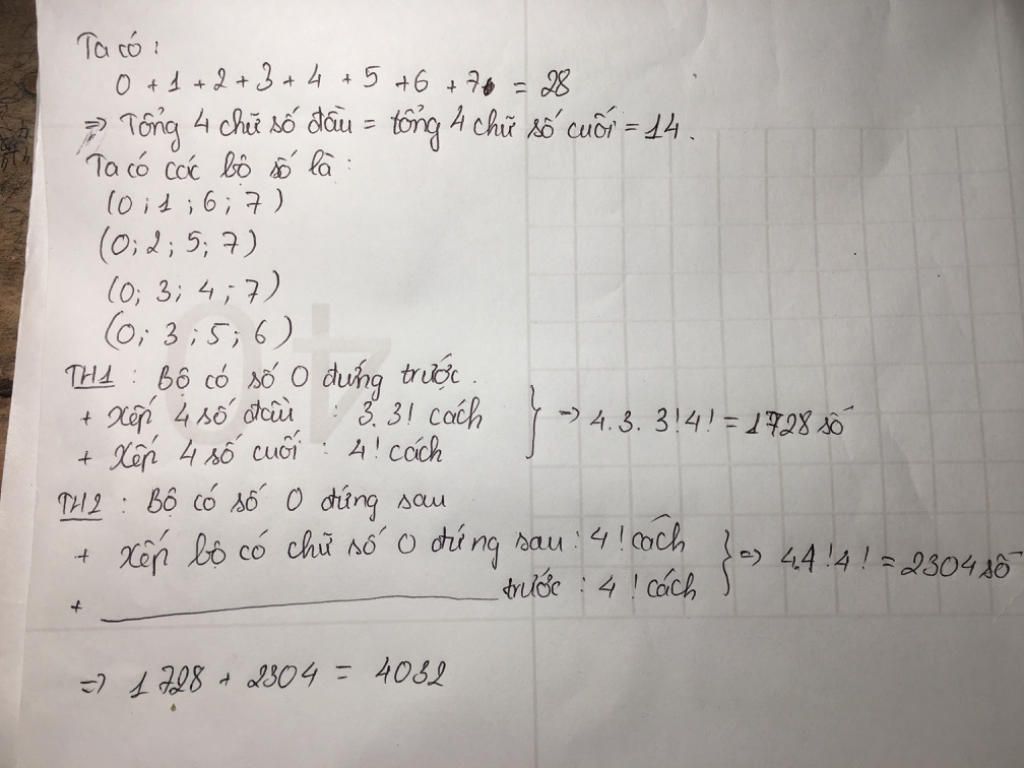 Ta có:
0 + 1 + 2 + 3 + 4 + 5 + 6 + 7 = 28
=> Tổng 4 chữ số đầu = tổng 4 chữ số cuối = 14.
Ta có các bộ số là:
(0; 1; 6; 7)
(0; 2; 5; 7)
(0; 3; 4; 7)
(0; 3; 5; 6)
TH1: Bộ có số 0 đứng trước.
+ Xếp 4 số đầu : 3. 3! cách
+ Xếp 4 số cuối : 4! cách
} => 4. 3. 3! 4! = 1728 số
TH2: Bộ có số 0 đứng sau
+ Xếp bộ có chữ số 0 đứng sau: 4! cách
+ ______________ trước: 4! cách
} => 4.4! 4! = 2304 số
=> 1728 + 2304 = 4032
40